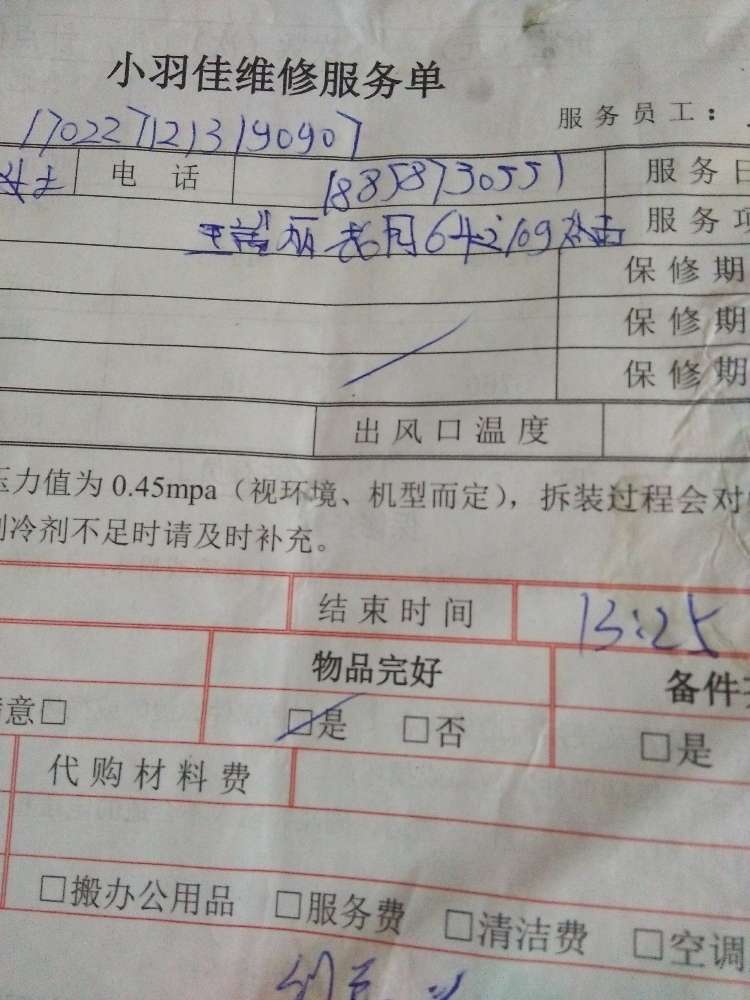 小羽佳维修服务单
服务员工：
1702271213190907
女士 电话 18858730551 服务日
服务项
保修期
保修期
保修期
出风口温度
压力值为0.45mpa（视环境、机型而定），拆装过程会对
制冷剂不足时请及时补充。
结束时间 13:25
物品完好 备件
意□ □是 □否 □是
代购材料费
□搬办公用品 □服务费 □清洁费 □空调